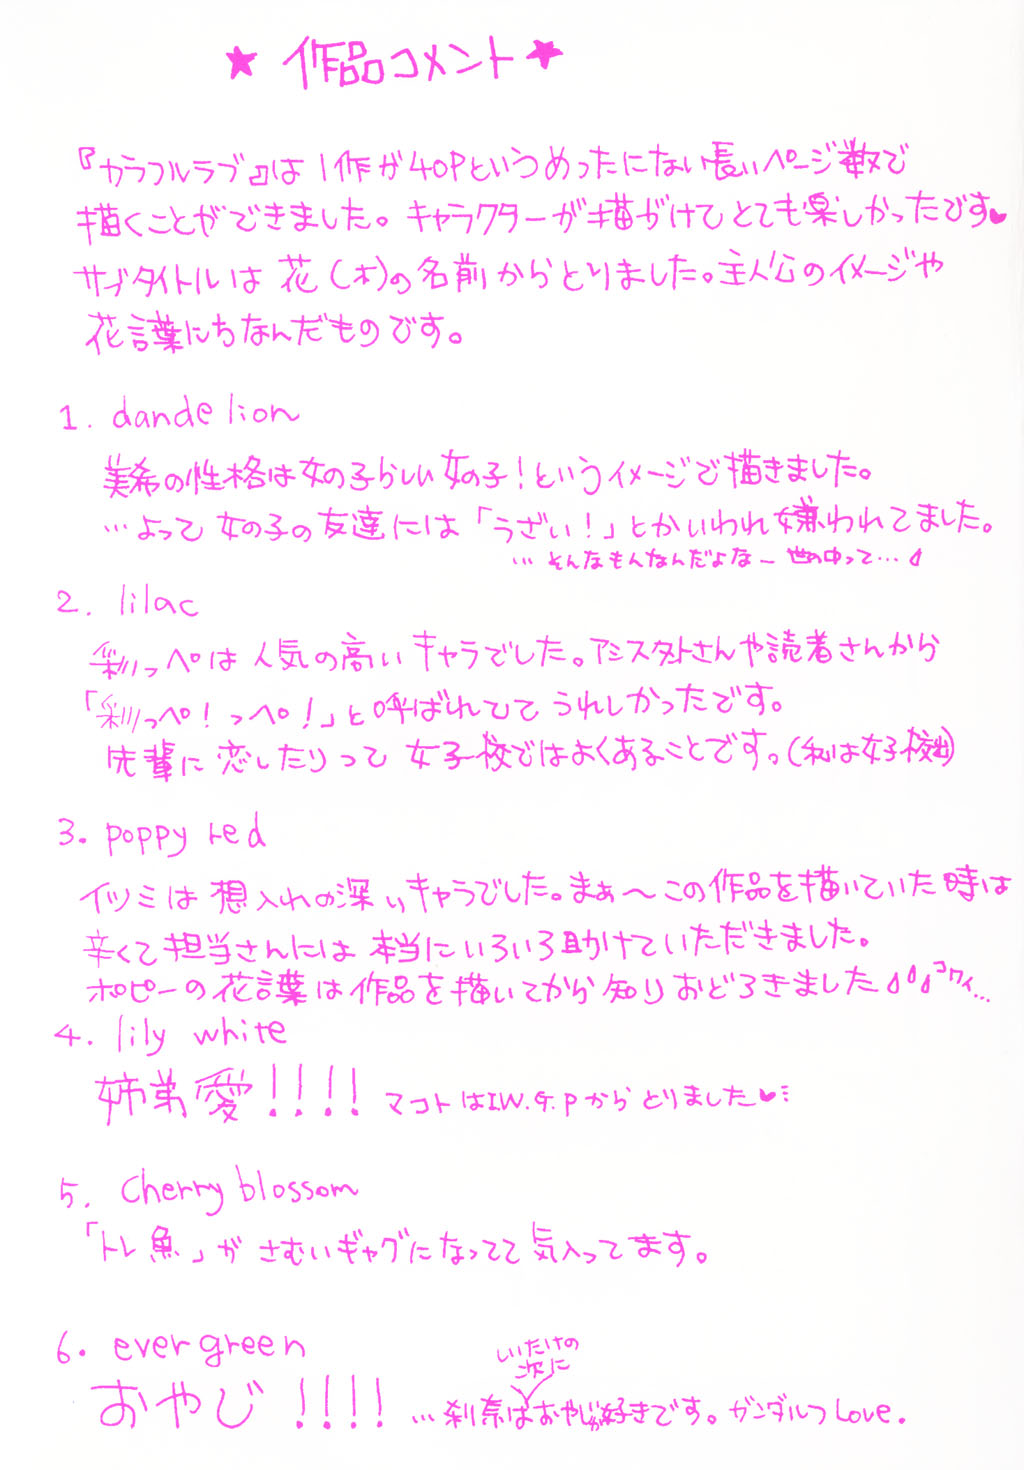 ★ 作品コメント ★
『カラフルラブ』は1作が40Pというめったにない長いページ数で
描くことができました。キャラクターが描かけてとても楽しかったです♥
サブタイトルは花(木)の名前からとりました。主人公のイメージや
花言葉にちなんだものです。
1. dandelion
美希の性格は女の子らしい女の子!というイメージで描きました。
…よって女の子の友達には「うざい!」とかいわれ嫌われてました。
…そんなもんなんだよなー世の中って…
2. lilac
彩っぺは人気の高いキャラでした。アシスタントさんや読者さんから
「彩っぺ!っぺ!」と呼ばれてて うれしかったです。
先輩に恋したりって女子校ではよくあることです。(私は女子校出)
3. poppy red
イツミは想入れの深いキャラでした。まぁ〜この作品を描いていた時は
辛くて担当さんには本当にいろいろ助けていただきました。
ポピーの花言葉は作品を描いてから知りおどろきました コワイ…
4. lily white
姉弟愛!!!! マコトはI.W.G.Pからとりました♥
5. Cherry blossom
「トレ魚」がさむいギャグになってて気入ってます。
6. evergreen
いたけの
次に
おやじ!!!! …刹奈はおやじが好きです。ガンダルフLove.